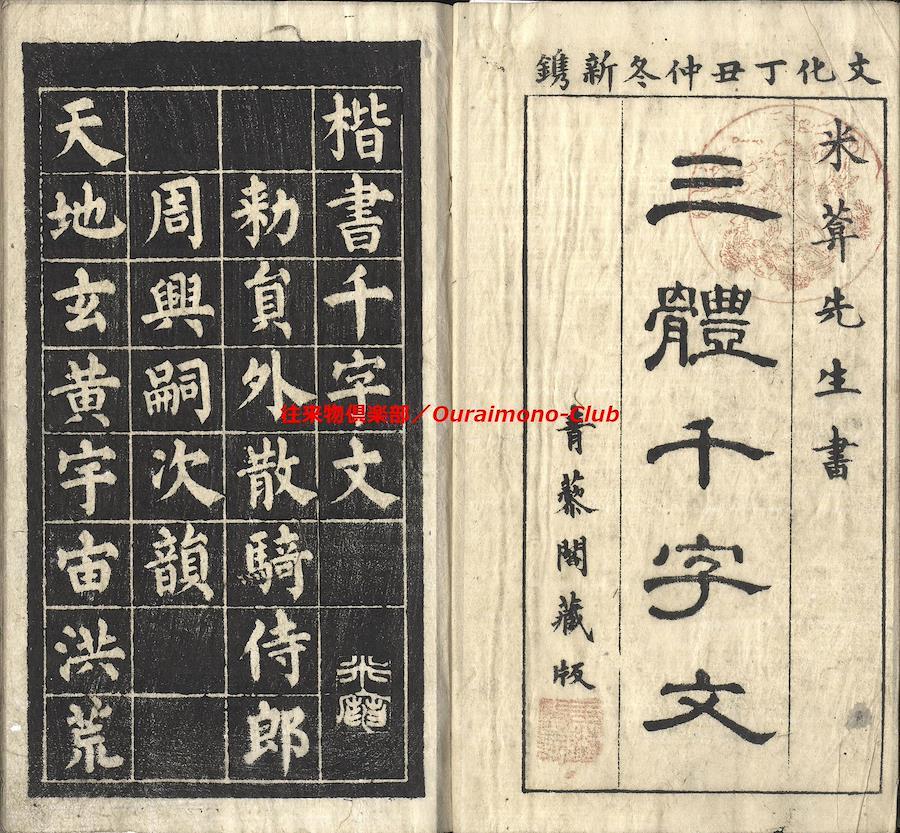 文化丁丑仲冬新鐫
米葊先生書
三體千字文
青藜閣藏版
楷書千字文
勅貟外散騎侍郎
周興嗣次韻
天地玄黄宇宙洪荒
往来物倶楽部／Ouraimono-Club